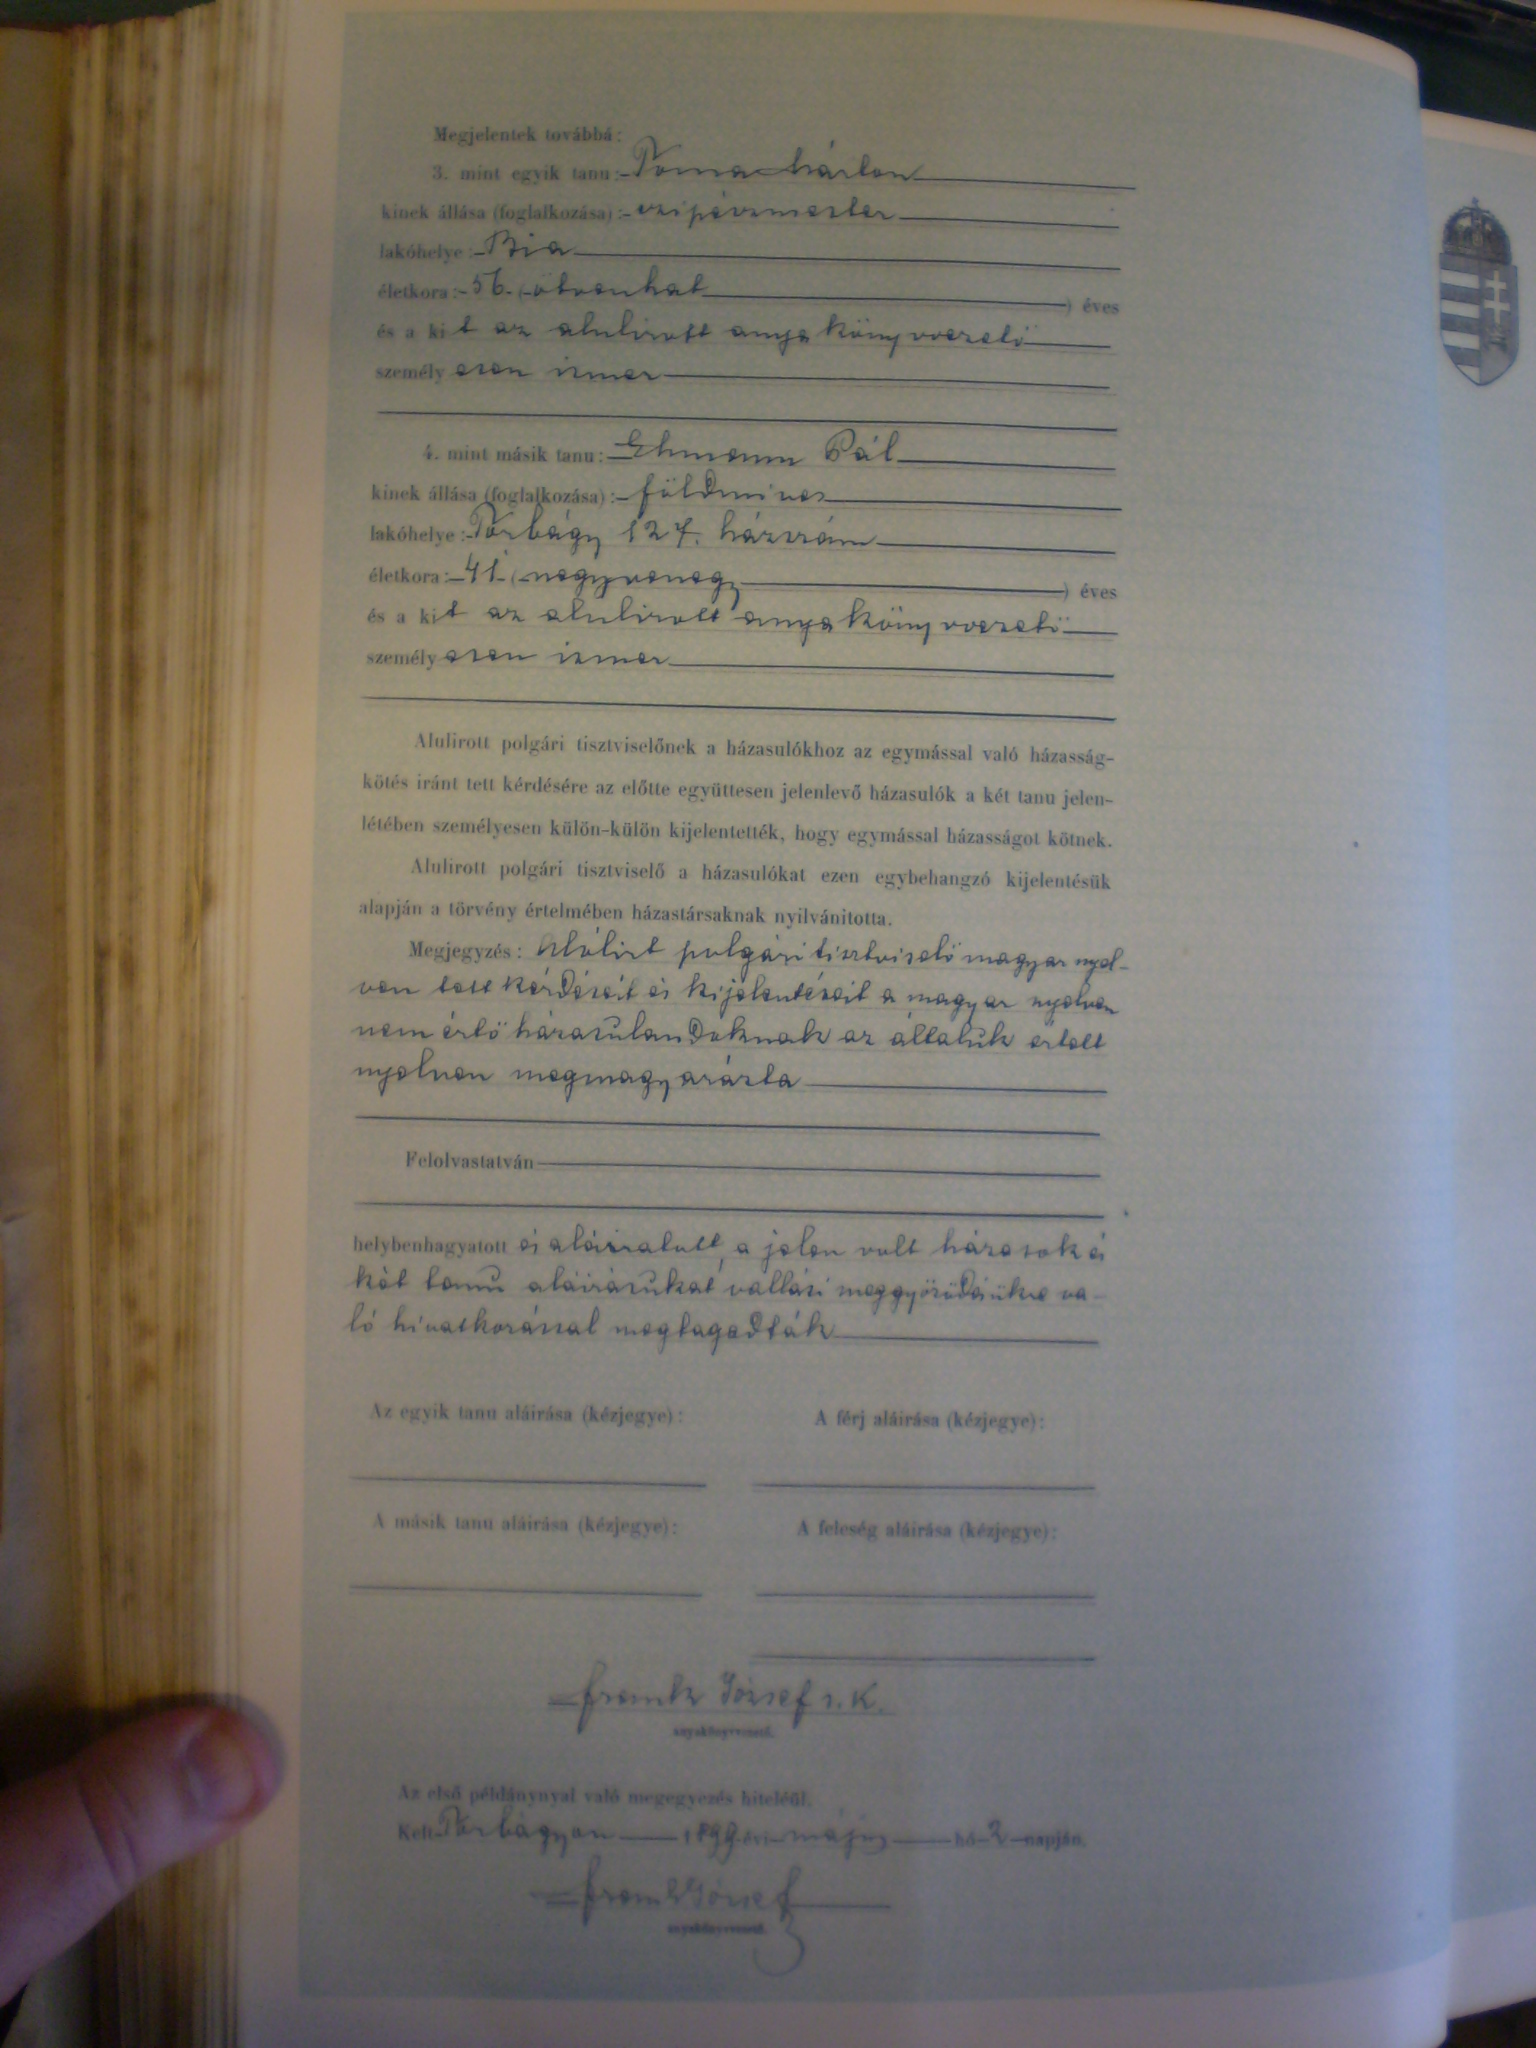 Megjelentek továbbá:
3. mint egyik tanu: Torna Márton
kinek állása (foglalkozása): szipészmester
lakóhelye: Bia
életkora: 56. (ötvenhat) éves
és a kit az alulirott anyakönyvvezető
személyesen ismer
4. mint másik tanu: Ehmann Pál
kinek állása (foglalkozása): földmives
lakóhelye: Torbágy 127. házszám
életkora: 41. (negyvenegy) éves
és a kit az alulirott anyakönyvvezető
személyesen ismer
Alulirott polgári tisztviselőnek a házasulókhoz az egymással való házasság-
kötés iránt tett kérdésére az előtte együttesen jelenlevő házasulók a két tanu jelen-
létében személyesen külön-külön kijelentették, hogy egymással házasságot kötnek.
Alulirott polgári tisztviselő a házasulókat ezen egybehangzó kijelentésük
alapján a törvény értelmében házastársaknak nyilvánitotta.
Megjegyzés: Alólirt polgári tisztviselő magyar nyel-
ven tett kérdéseit és kijelentéseit a magyar nyelven
nem értő házasulandoknak az általuk értett
nyelven megmagyarázta
Felolvastatván
helybenhagyatott és aláiratott, a jelen volt házasok és
két tanu aláirásukat vallási meggyőződésükre va-
ló hivatkozással megtagadták
Az egyik tanu aláirása (kézjegye):
A férj aláirása (kézjegye):
A másik tanu aláirása (kézjegye):
A feleség aláirása (kézjegye):
Frank József s. k.
anyakönyvvezető.
Az első példánynyal való megegyezés hiteléül.
Kelt Torbágyon 1899 évi május hó 2 napján.
Frank József
anyakönyvvezető.